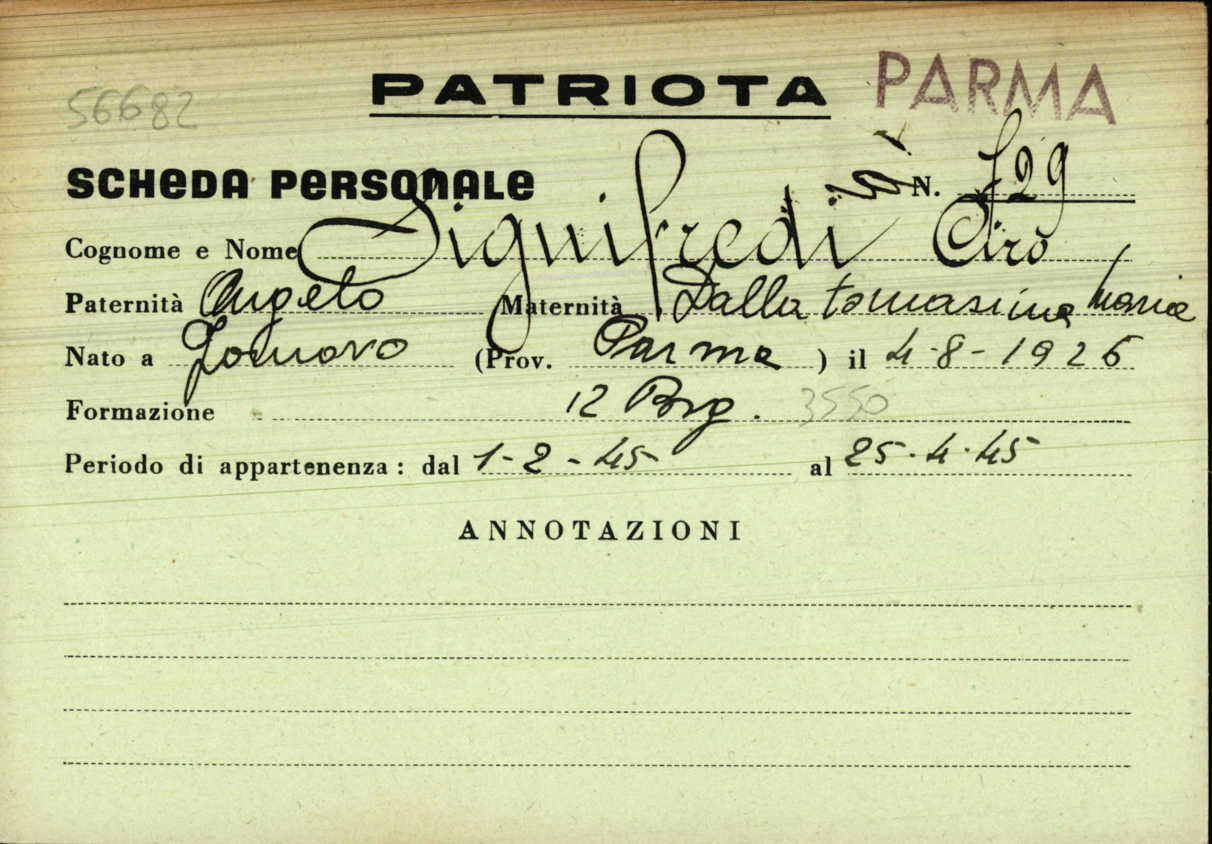 56682 PATRIOTA PARMA
SCHEDA PERSONALE N. 729
Cognome e Nome Signifredi Ciro
Paternità Angelo Maternità Dallatomasina Maria
Nato a Fornovo (Prov. Parma ) il 4-8-1926
Formazione 12 Brg. 3550
Periodo di appartenenza: dal 1-2-45 al 25.4.45
ANNOTAZIONI